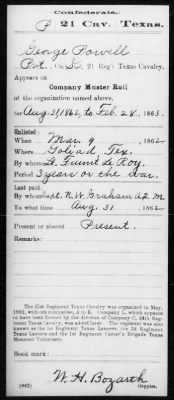 Confederate.
P 21 Cav. Texas.
George Powell
Pvt., Co. , 21 Reg't Texas Cavalry.
Appears on
Company Muster Roll
of the organization named above,
for Aug. 31/1862, to Feb. 28, 1863.
Enlisted:
When Mar. 9, 1862.
Where Goliad Tex.
By whom Lt. De Roy.
Period 3 years or the war.
Last paid:
By whom Capt. R. W. Graham A.Q.M.
To what time Aug. 31, 1862.
Present or absent Present.
Remarks:
The 21st Regiment Texas Cavalry was organized in May,
1862, with ten companies, A to K. Company L, which appears
to have been formed by the division of Company C, 24th Regiment
Texas Cavalry, was added later. The regiment was also
known as the 1st Regiment Texas Lancers, one 2d Regiment
Texas Lancers and the 1st Regiment Carter's Brigade Texas
Mounted Volunteers.
Book mark:
W. H. Bozarth
(642) Copyist.